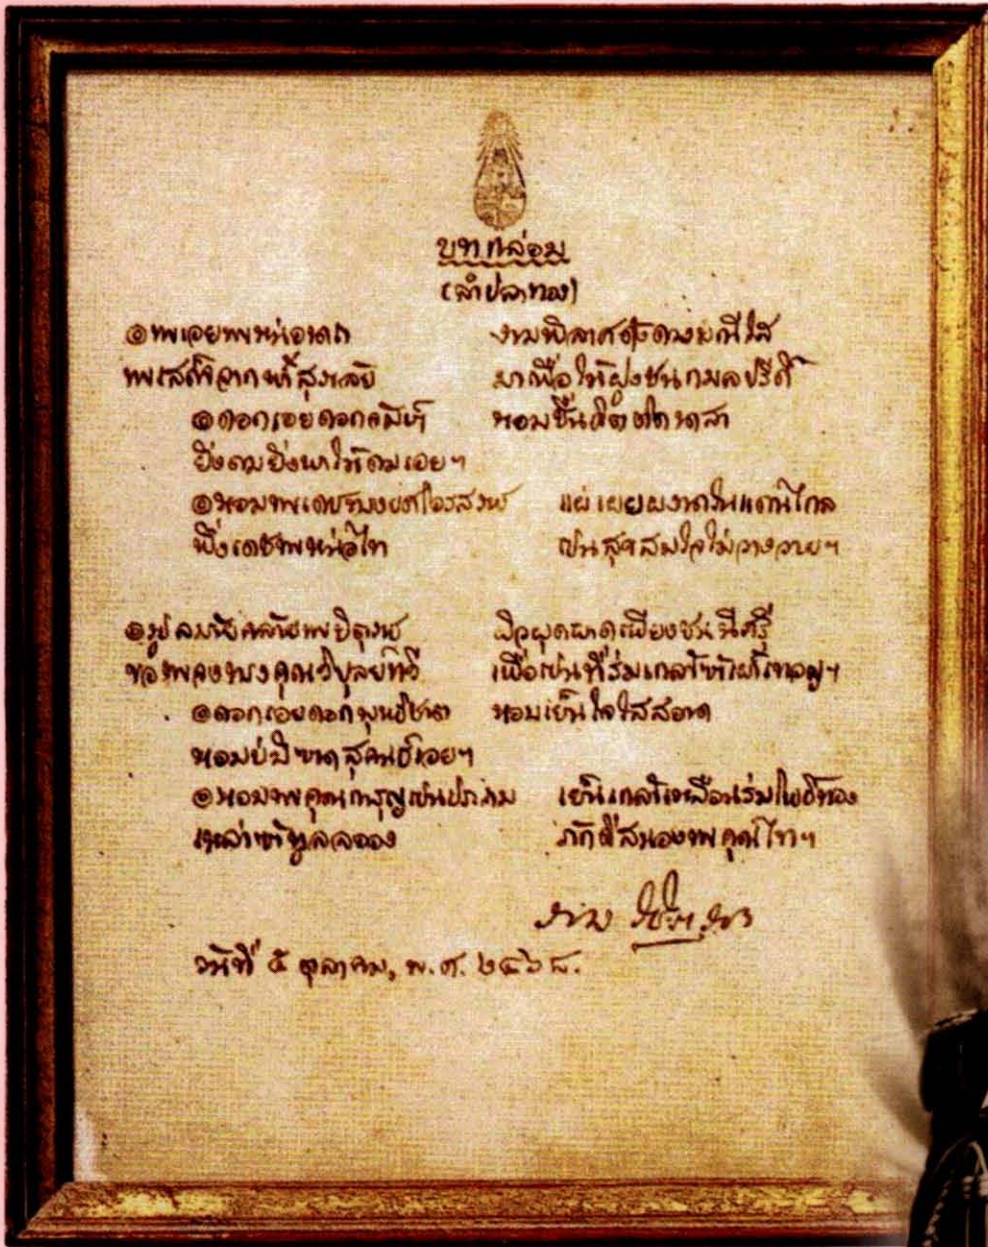 บทกล่อม
(ลำปลาทอง)
๏ พระเอยพระหน่อนาถ งามพิลาศดั่งดวงมณีใส
พระเสด็จจากฟ้าสุราลัย มาเพื่อให้ฝูงชนกมลปรีดิ์
๏ ดอกเอยดอกจำปา หอมชื่นนาสา
ยิ่งดมยิ่งพาให้ดมเอยฯ
๏ หอมพระเดชทรงยศโอรสราช แผ่เผยผงาดในแดนไกล
พึ่งเดชพระหน่อไท เป็นสุขสมใจไม่วางวายฯ
๏ รูปลม้ายคล้ายพระบิตุราช ผิวผุดผาดเพียงชนนีศรี
ขอพระจงทรงคุณวิบุลย์ทวี เพื่อเป็นที่ร่มเกล้าข้าเฝ้าเทอญฯ
๏ ดอกเอยดอกพุทธชาด หอมเย็นใจใสสอาด
หอมบ่มิขาดสุคนธ์เอยฯ
๏ หอมพระคุณการุญเป็นประถม เย็นเกล้าเหมือนร่มโพธิ์ทอง
เหล่าข้าทูลลออง ภักดีสนองพระคุณไทฯ
ราม วชิราวุธ ปร
วันที่ ๕ ตุลาคม, พ.ศ. ๒๔๖๘.